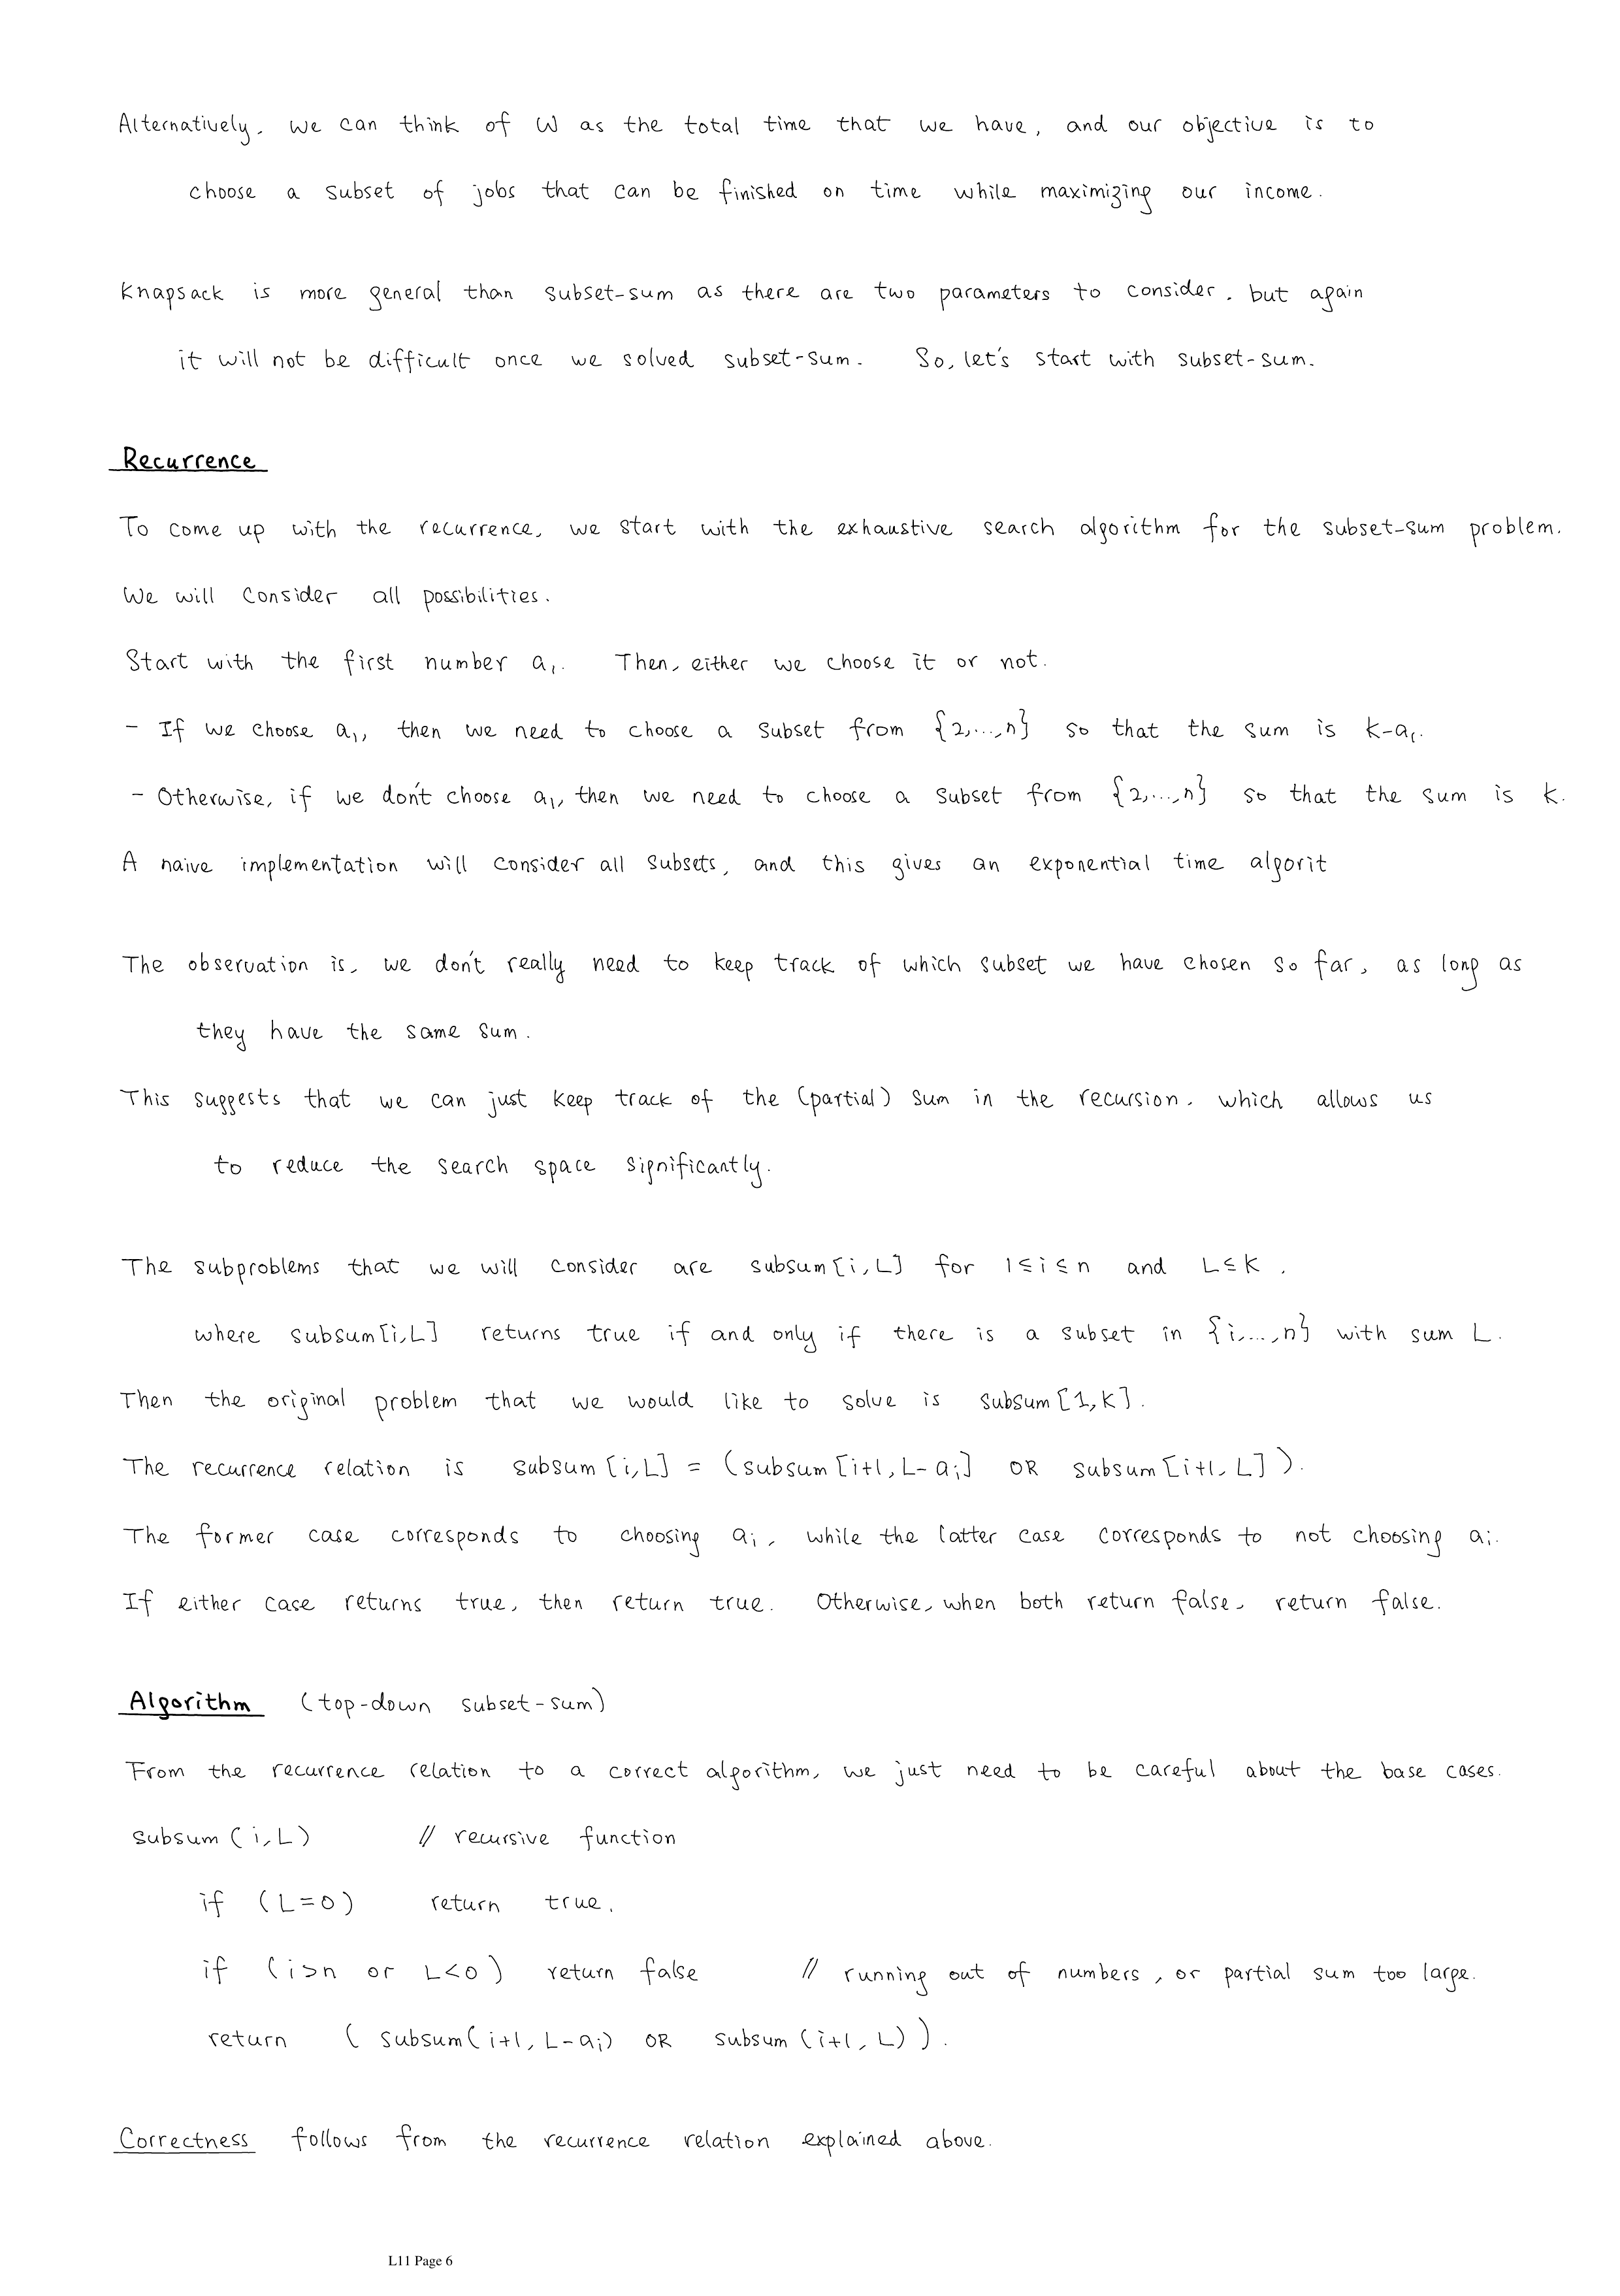 Alternatively, we can think of W as the total time that we have, and our objective is to
choose a subset of jobs that can be finished on time while maximizing our income.
Knapsack is more general than subset-sum as there are two parameters to consider, but again
it will not be difficult once we solved subset-sum. So, let's start with subset-sum.
Recurrence
To come up with the recurrence, we start with the exhaustive search algorithm for the subset-sum problem.
We will consider all possibilities.
Start with the first number a₁. Then, either we choose it or not.
- If we choose a₁, then we need to choose a subset from {2,...,n} so that the sum is K-a₁.
- Otherwise, if we don't choose a₁, then we need to choose a subset from {2,...,n} so that the sum is K.
A naive implementation will consider all subsets, and this gives an exponential time algorit
The observation is, we don't really need to keep track of which subset we have chosen so far, as long as
they have the same sum.
This suggests that we can just keep track of the (partial) sum in the recursion, which allows us
to reduce the search space significantly.
The subproblems that we will consider are subsum[i,L] for 1≤i≤n and L≤K,
where subsum[i,L] returns true if and only if there is a subset in {i,...,n} with sum L.
Then the original problem that we would like to solve is subsum[1,K].
The recurrence relation is subsum[i,L] = (subsum[i+1, L-aᵢ] OR subsum[i+1, L]).
The former case corresponds to choosing aᵢ, while the latter case corresponds to not choosing aᵢ.
If either case returns true, then return true. Otherwise, when both return false, return false.
Algorithm (top-down subset-sum)
From the recurrence relation to a correct algorithm, we just need to be careful about the base cases.
subsum(i,L) // recursive function
if (L=0) return true.
if (i>n or L<0) return false // running out of numbers, or partial sum too large.
return (subsum(i+1, L-aᵢ) OR subsum(i+1, L)).
Correctness follows from the recurrence relation explained above.
L11 Page 6